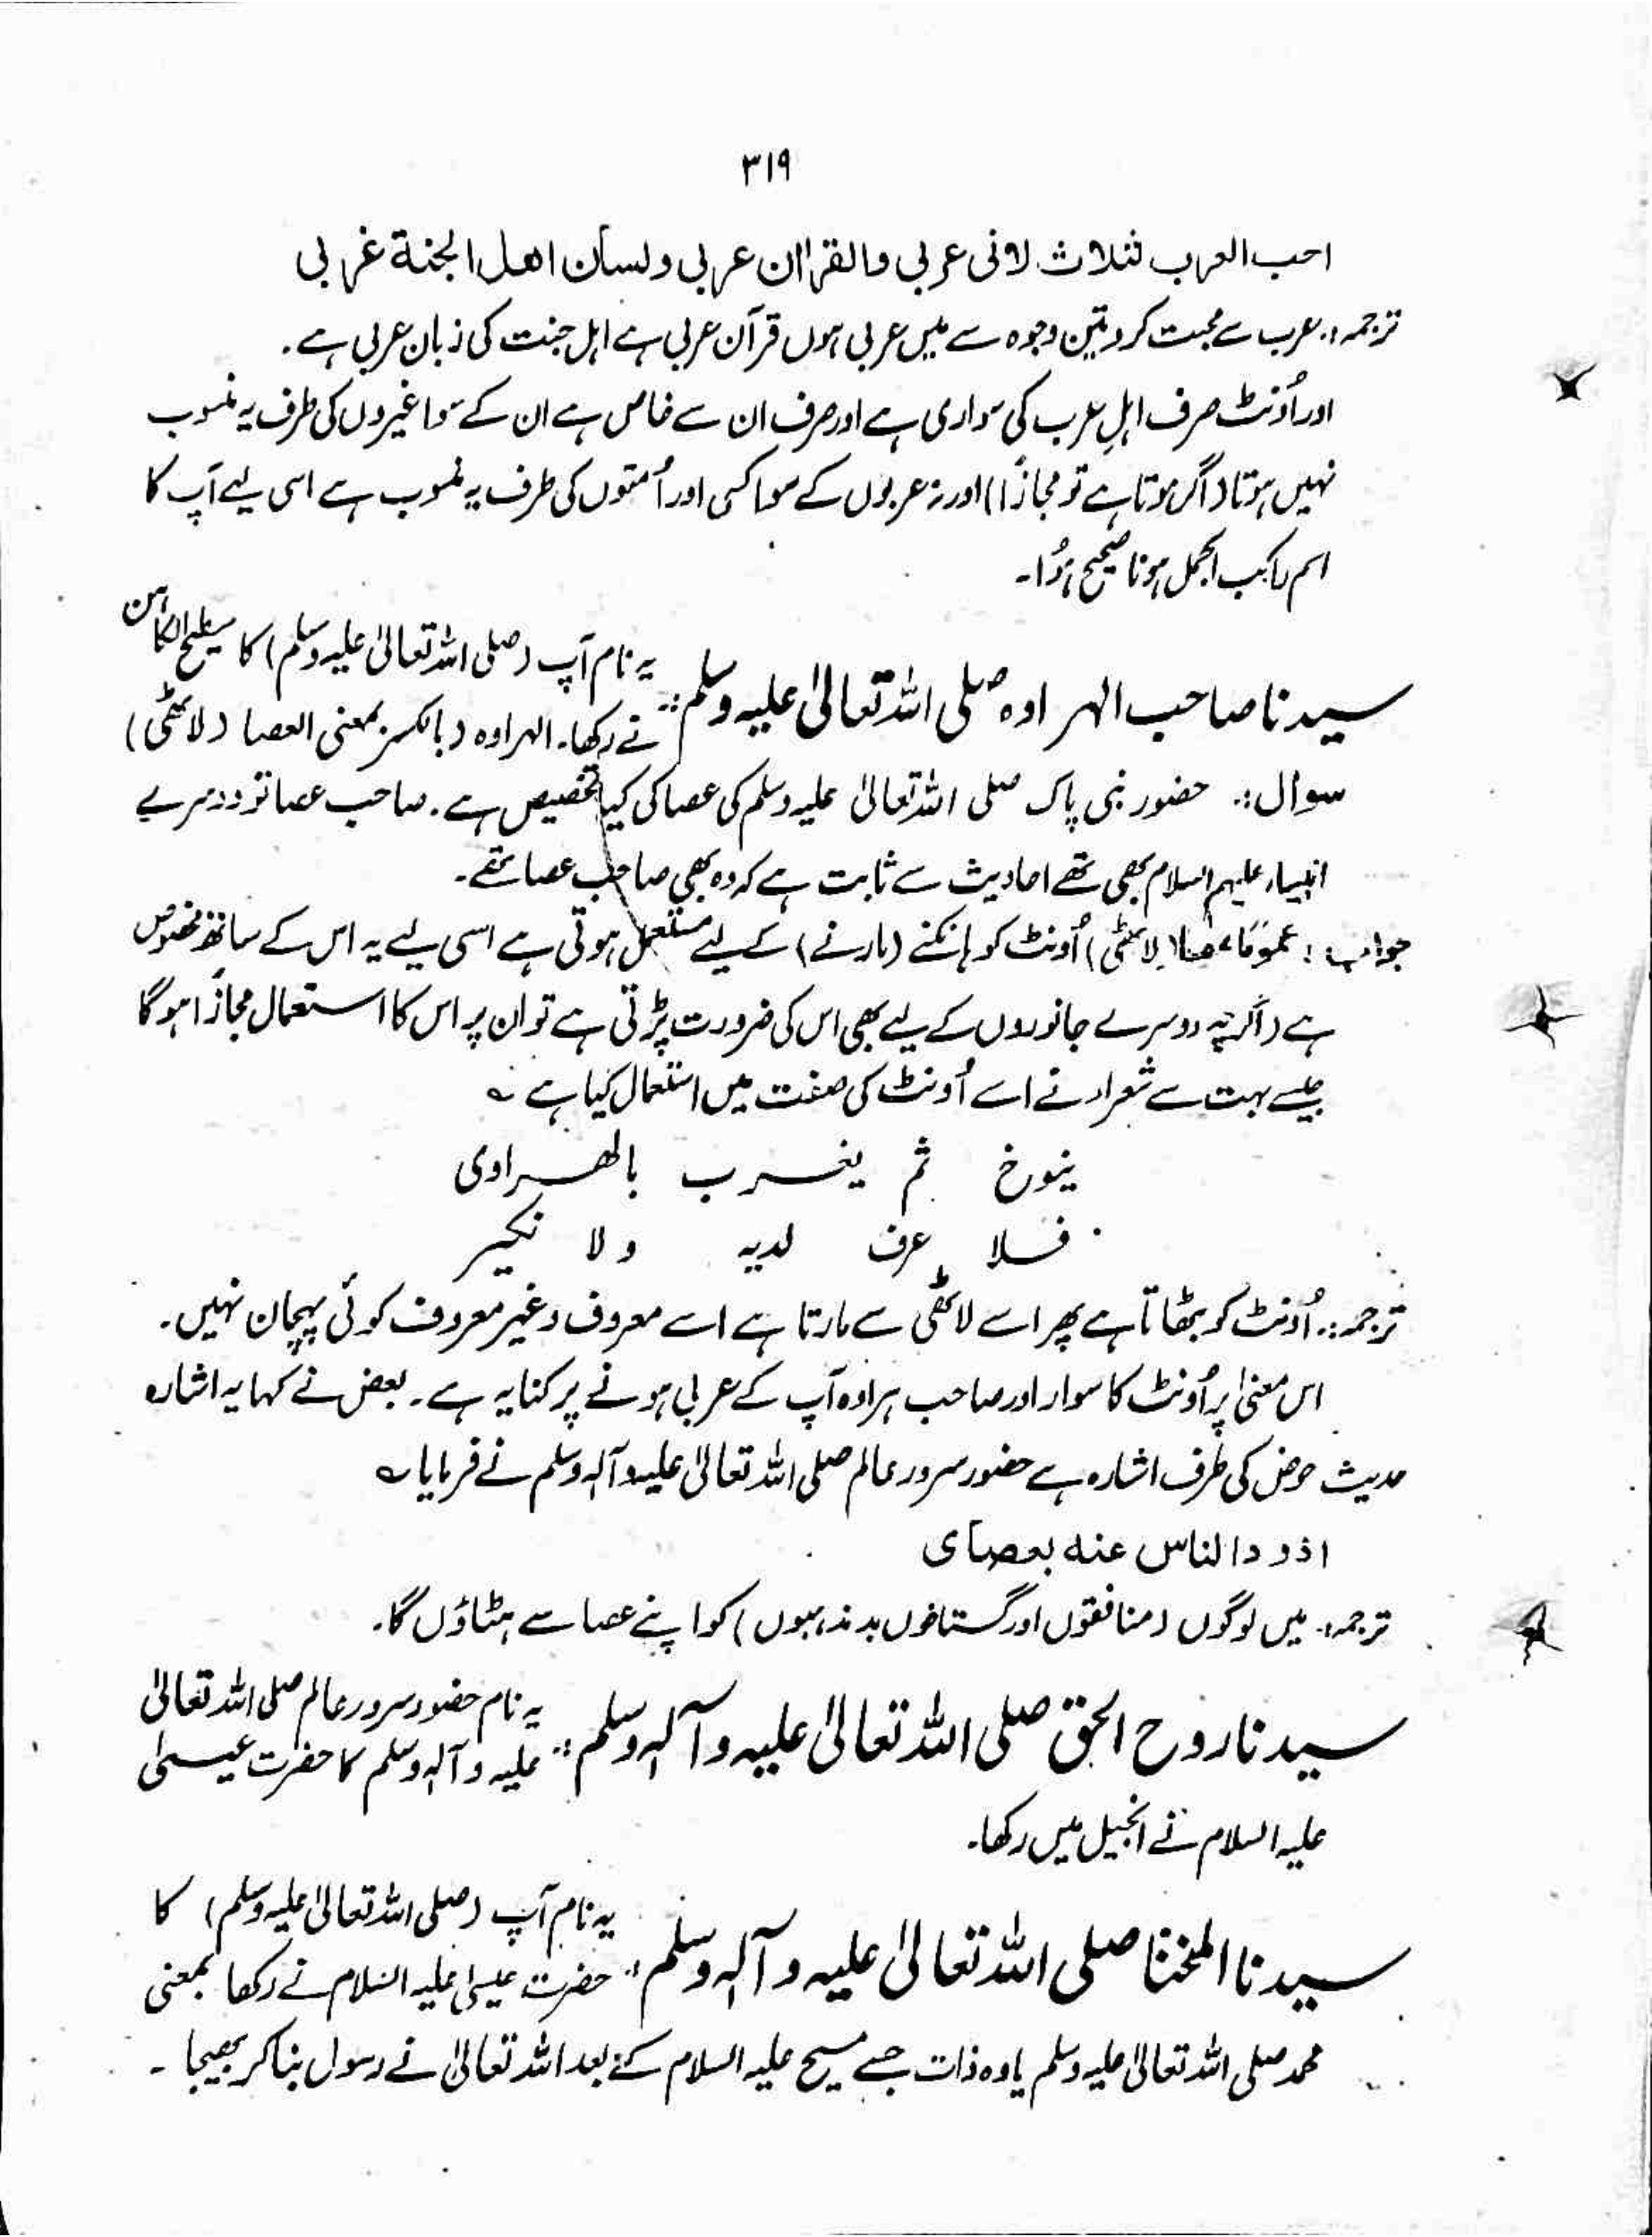 ۳۱۹
احب العرب لثلاث لانی عربی والقراٰن عربی ولسان اهل الجنة عربی
ترجمہ:۔ عرب سے محبت کرو تین وجوہ سے میں عربی ہوں قرآن عربی ہے اہل جنت کی زبان عربی ہے۔
اور اُونٹ صرف اہلِ عرب کی سواری ہے اور صرف ان سے خاص ہے ان کے سوا غیروں کی طرف یہ منسوب
نہیں ہوتا (اگر ہوتا ہے تو مجازًا) اور نہ عربوں کے سوا کسی اور اُمتوں کی طرف یہ منسوب ہے اسی لیے آپ کا
اسم راکب الجمل ہونا صحیح ہُوا۔
سیدنا صاحب الہراوہ صلی اللہ تعالیٰ علیہ وسلم:: یہ نام آپ (صلی اللہ تعالیٰ علیہ وسلم) کا سطیح الکاہن
نے رکھا۔ الہراوہ (بالکسر بمعنی العصا (لاٹھی)
سوال:۔ حضور نبی پاک صلی اللہ تعالیٰ علیہ وسلم کی عصا کی کیا تخصیص ہے۔ صاحب عصا تو دوسرے
انبیاء علیہم السلام بھی تھے احادیث سے ثابت ہے کہ وہ بھی صاحب عصا تھے۔
جواب: عمومًا عصا (لاٹھی) اُونٹ کو ہانکنے (مارنے) کے لیے مستعمل ہوتی ہے اسی لیے یہ اس کے ساتھ مخصوص
ہے (اگرچہ دوسرے جانوروں کے لیے بھی اس کی ضرورت پڑتی ہے تو ان پر اس کا استعمال مجازًا ہوگا
جیسے بہت سے شعراء نے اسے اُونٹ کی صفت میں استعمال کیا ہے ؎
ینوخ ثم یضرب بالھراوی
فلا عرف لدیہ ولا نکیر
ترجمہ:۔ اُونٹ کو بٹھاتا ہے پھر اسے لاٹھی سے مارتا ہے اسے معروف و غیر معروف کوئی پہچان نہیں۔
اس معنیٰ پر اُونٹ کا سوار اور صاحب ہراوہ آپ کے عربی ہونے پر کنایہ ہے۔ بعض نے کہا یہ اشارہ
حدیث حوض کی طرف اشارہ ہے حضور سرور عالم صلی اللہ تعالیٰ علیہ وآلہٖ وسلم نے فرمایا ؎
اذودا لناس عنه بعصای
ترجمہ:۔ میں لوگوں (منافقوں اور گستاخوں بدمذہبوں) کو اپنے عصا سے ہٹاؤں گا۔
سیدنا روح الحق صلی اللہ تعالیٰ علیہ وآلہٖ وسلم:: یہ نام حضور سرور عالم صلی اللہ تعالیٰ
علیہ وآلہٖ وسلم کا حضرت عیسیٰ
علیہ السلام نے انجیل میں رکھا۔
سیدنا المنحنا صلی اللہ تعالیٰ علیہ وآلہٖ وسلم:: یہ نام آپ (صلی اللہ تعالیٰ علیہ وسلم) کا
حضرت عیسیٰ علیہ السلام نے رکھا بمعنی
محمد صلی اللہ تعالیٰ علیہ وسلم یا وہ ذات جسے مسیح علیہ السلام کے بعد اللہ تعالیٰ نے رسول بنا کر بھیجا۔